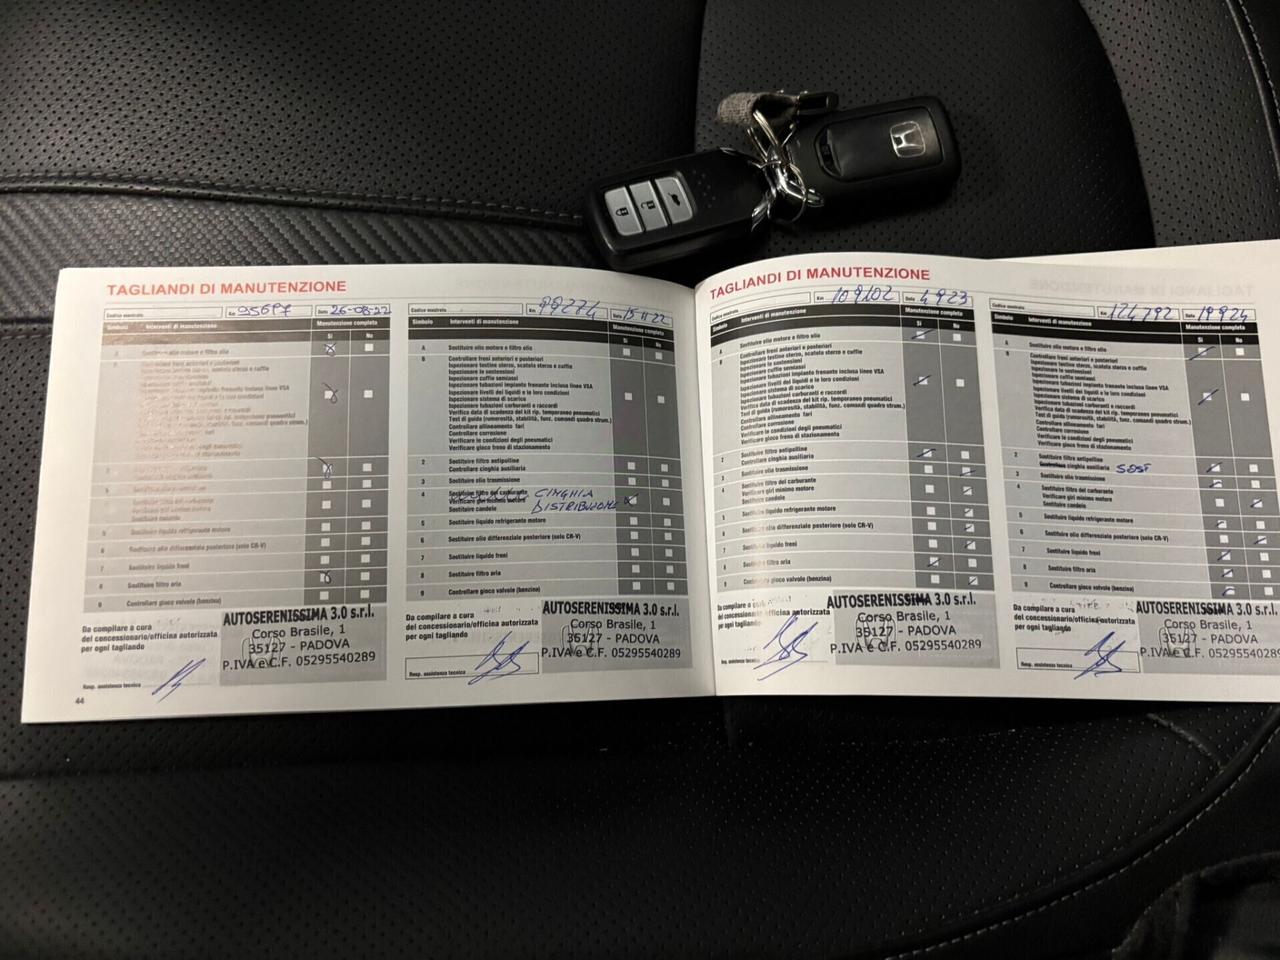 TAGLIANDI DI MANUTENZIONE
Km 95697 Data 26-08-22
Simbolo Interventi di manutenzione Manutenzione completa
Si No
A Sostituire olio motore e filtro olio
9 Controllare gioco valvole (benzina)
Da compilare a cura
del concessionario/officina autorizzata
per ogni tagliando
AUTOSERENISSIMA 3.0 s.r.l.
Corso Brasile, 1
35127 - PADOVA
P.IVA e C.F. 05295540289
Resp. assistenza tecnica
44
Km 99274 Data 15-11-22
Simbolo Interventi di manutenzione Manutenzione completa
Si No
A Sostituire olio motore e filtro olio
B Controllare freni anteriori e posteriori
Ispezionare testine sterzo, scatola sterzo e cuffie
Ispezionare le sostensioni
Ispezionare cuffie semiassi
Ispezionare tubazioni impianto frenante incluse linee VSA
Ispezionare livelli dei liquidi e le loro condizioni
Ispezionare sistema di scarico
Ispezionare tubazioni carburanti e raccordi
Verifica data di scadenza del kit rip. temporaneo pneumatici
Test di guida (rumorosità, stabilità, funz. comandi quadro strum.)
Controllare allineamento fari
Controllare corrosione
Verificare le condizioni degli pneumatici
Verificare gioco freno di stazionamento
2 Sostituire filtro antipolline
Controllare cinghia ausiliaria
3 Sostituire olio trasmissione
4 Sostituire filtro del carburante CINGHIA
Verificare giri minimo motore DISTRIBUZIONE
Sostituire candele
5 Sostituire liquido refrigerante motore
6 Sostituire olio differenziale posteriore (solo CR-V)
7 Sostituire liquido freni
8 Sostituire filtro aria
9 Controllare gioco valvole (benzina)
Da compilare a cura
del concessionario/officina autorizzata
per ogni tagliando
AUTOSERENISSIMA 3.0 s.r.l.
Corso Brasile, 1
35127 - PADOVA
P.IVA e C.F. 05295540289
Resp. assistenza tecnica
TAGLIANDI DI MANUTENZIONE
Km 109102 Data 4 9 23
Simbolo Interventi di manutenzione Manutenzione completa
Si No
A Sostituire olio motore e filtro olio
B Controllare freni anteriori e posteriori
Ispezionare testine sterzo, scatola sterzo e cuffie
Ispezionare le sostensioni
Ispezionare cuffie semiassi
Ispezionare tubazioni impianto frenante incluse linee VSA
Ispezionare livelli dei liquidi e le loro condizioni
Ispezionare sistema di scarico
Ispezionare tubazioni carburanti e raccordi
Verifica data di scadenza del kit rip. temporaneo pneumatici
Test di guida (rumorosità, stabilità, funz. comandi quadro strum.)
Controllare allineamento fari
Controllare corrosione
Verificare le condizioni degli pneumatici
Verificare gioco freno di stazionamento
2 Sostituire filtro antipolline
Controllare cinghia ausiliaria
3 Sostituire olio trasmissione
4 Sostituire filtro del carburante
Verificare giri minimo motore
Sostituire candele
5 Sostituire liquido refrigerante motore
6 Sostituire olio differenziale posteriore (solo CR-V)
7 Sostituire liquido freni
8 Sostituire filtro aria
9 Controllare gioco valvole (benzina)
Da compilare a cura
del concessionario/officina autorizzata
per ogni tagliando
AUTOSERENISSIMA 3.0 s.r.l.
Corso Brasile, 1
35127 - PADOVA
P.IVA e C.F. 05295540289
Resp. assistenza tecnica
Km 124792 Data 19 9 24
Simbolo Interventi di manutenzione Manutenzione completa
Si No
A Sostituire olio motore e filtro olio
B Controllare freni anteriori e posteriori
Ispezionare testine sterzo, scatola sterzo e cuffie
Ispezionare le sostensioni
Ispezionare cuffie semiassi
Ispezionare tubazioni impianto frenante incluse linee VSA
Ispezionare livelli dei liquidi e le loro condizioni
Ispezionare sistema di scarico
Ispezionare tubazioni carburanti e raccordi
Verifica data di scadenza del kit rip. temporaneo pneumatici
Test di guida (rumorosità, stabilità, funz. comandi quadro strum.)
Controllare allineamento fari
Controllare corrosione
Verificare le condizioni degli pneumatici
Verificare gioco freno di stazionamento
2 Sostituire filtro antipolline
Controllare cinghia ausiliaria SOST
3 Sostituire olio trasmissione
4 Sostituire filtro del carburante
Verificare giri minimo motore
Sostituire candele
5 Sostituire liquido refrigerante motore
6 Sostituire olio differenziale posteriore (solo CR-V)
7 Sostituire liquido freni
8 Sostituire filtro aria
9 Controllare gioco valvole (benzina)
Da compilare a cura
del concessionario/officina autorizzata
per ogni tagliando
AUTOSERENISSIMA 3.0 s.r.l.
Corso Brasile, 1
35127 - PADOVA
P.IVA e C.F. 05295540289
Resp. assistenza tecnica